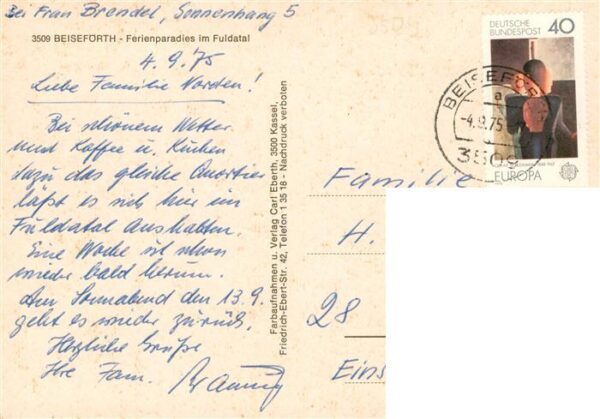 Bei Frau Brendel, Sonnenhang 5
3509 BEISEFÖRTH - Ferienparadies im Fuldatal
4.9.75
Liebe Familie Norden!
Bei schönem Wetter
und Kaffee u. Kuchen
dazu das gleiche Quartier
läßt es sich hier im
Fuldatal Aushalten.
Eine Woche ist schon
wieder bald herum.
Am Sonnabend den 13.9.
geht es wieder zurück.
Herzliche Grüße
Ihre Fam.
Farbaufnahmen u. Verlag Carl Eberth, 3500 Kassel,
Friedrich-Ebert-Str. 42, Telefon 1 35 18 - Nachdruck verboten
DEUTSCHE
BUNDESPOST
40
EUROPA
BEISEFÖR
a
-4.9.75
3509
Familie
H.
28
Eins